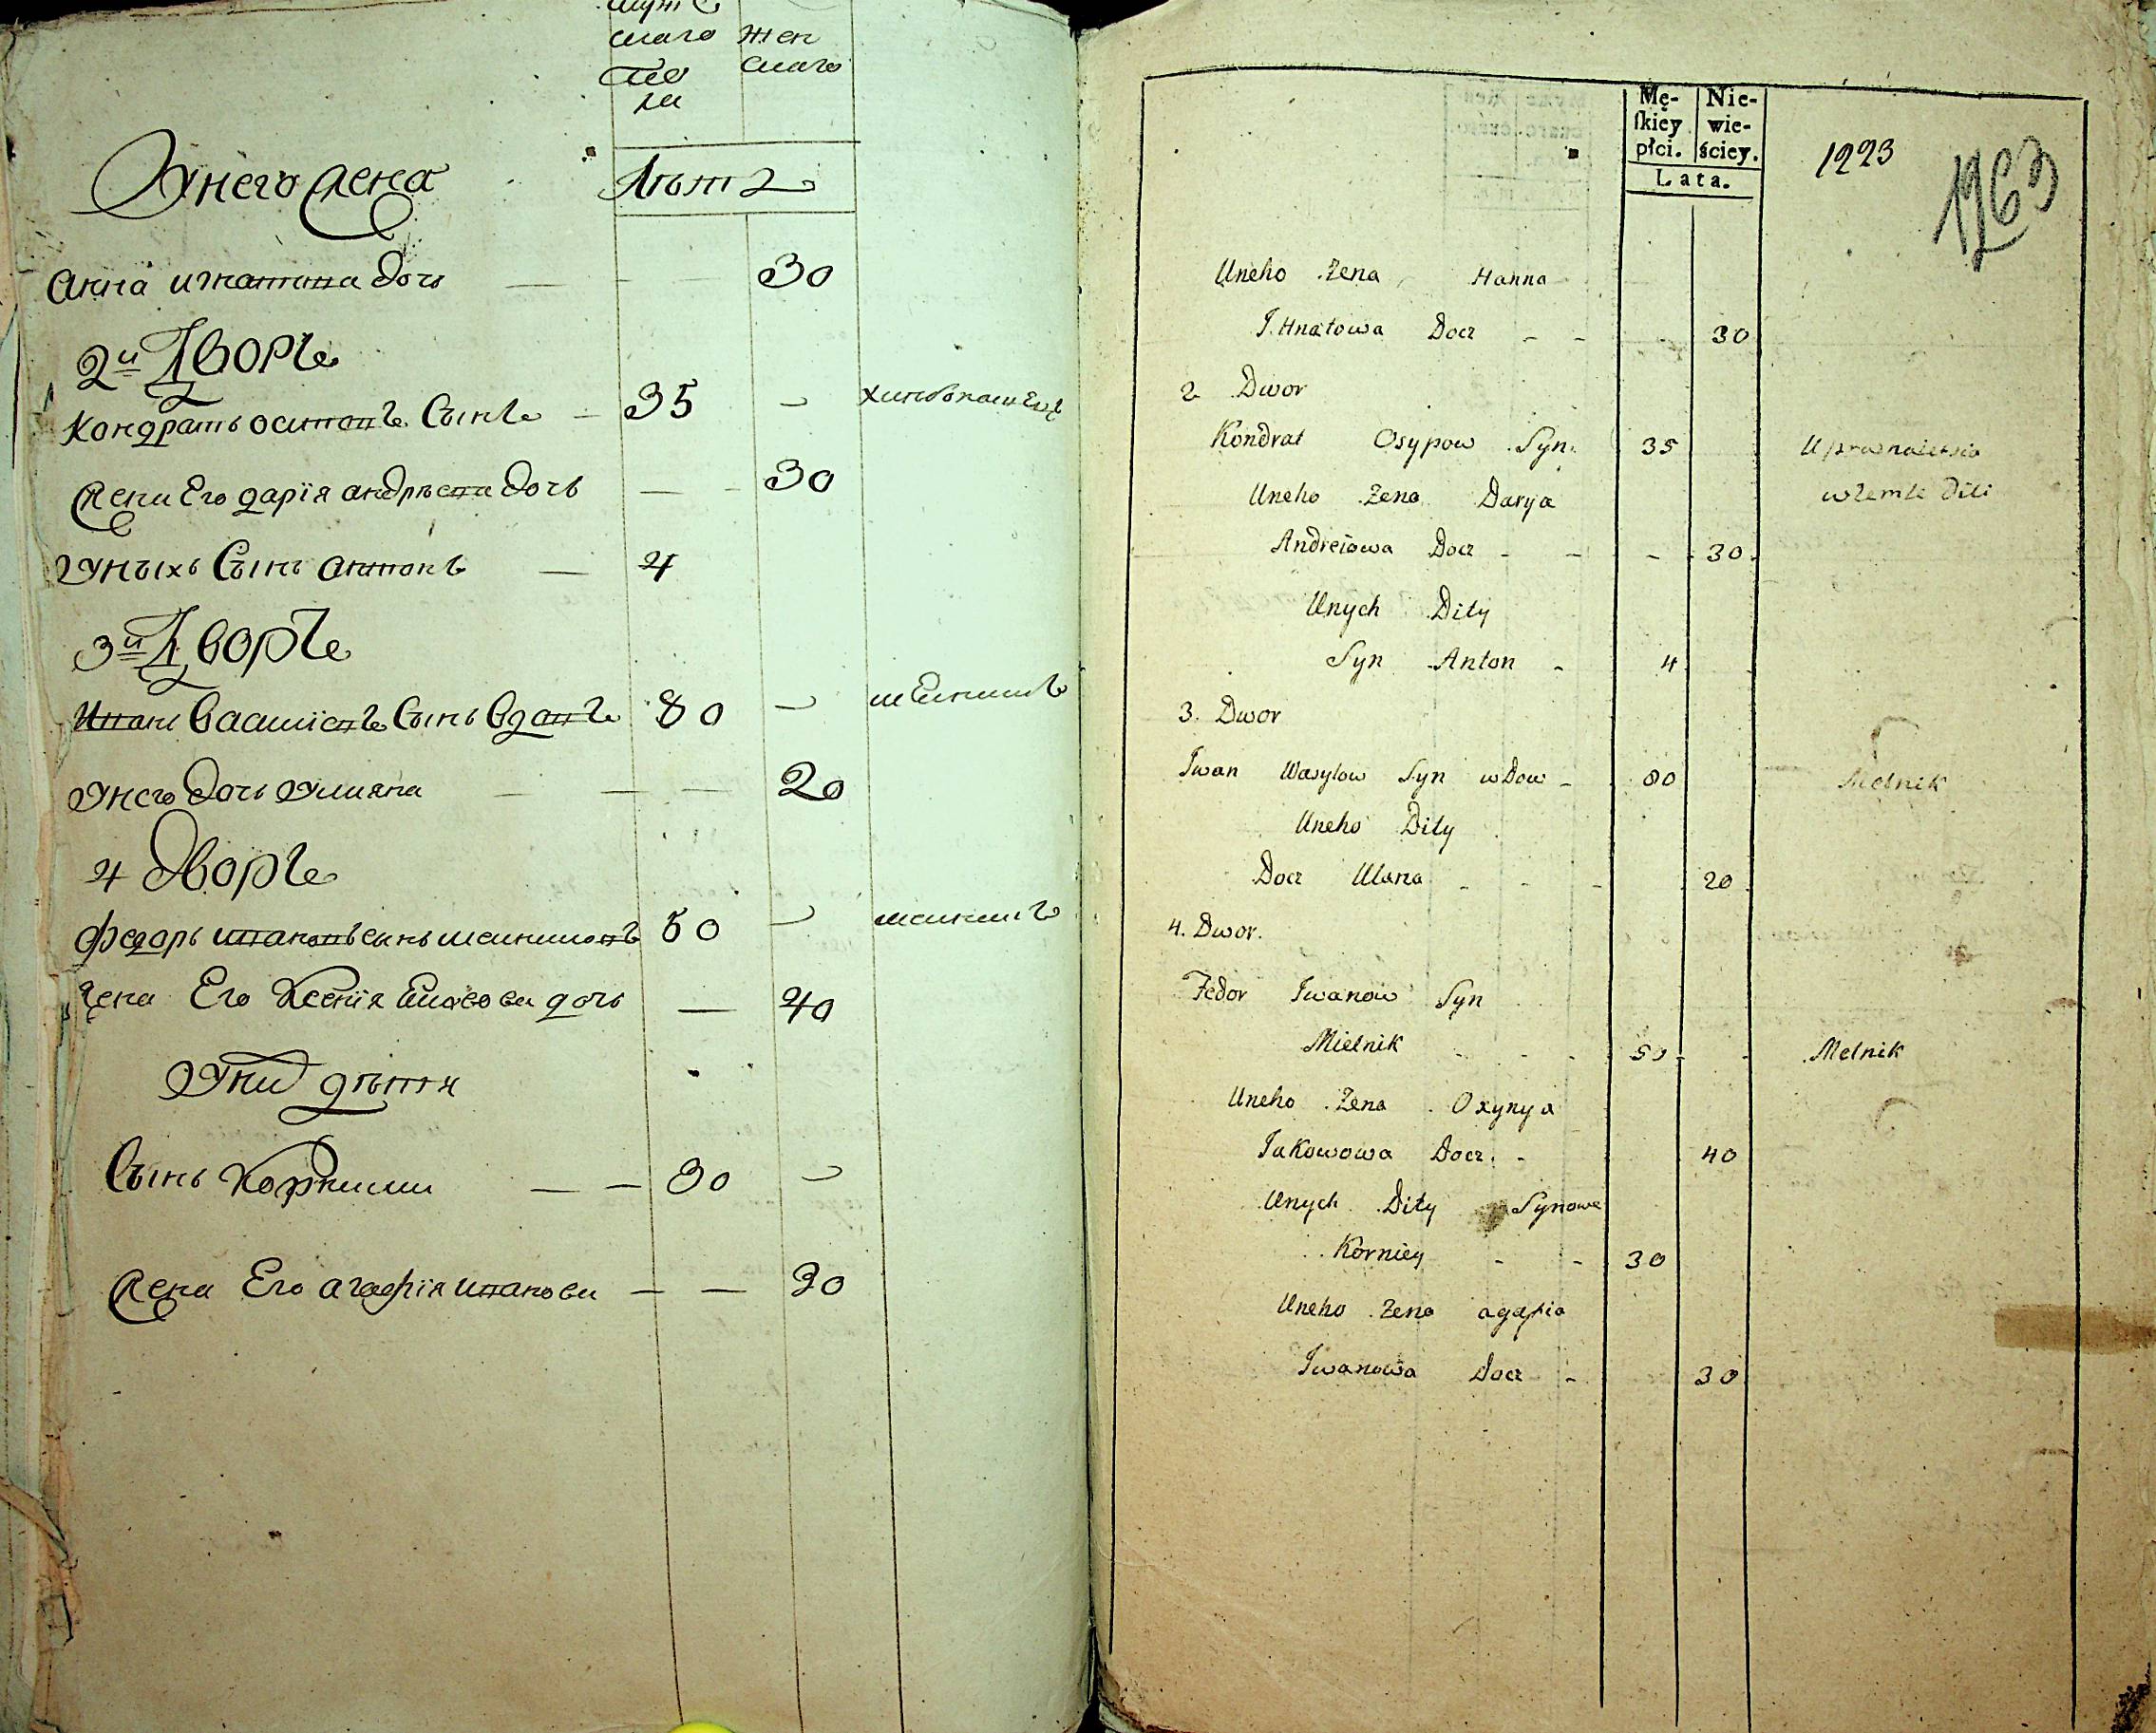 муж
скаго жен
скаго
по
ла
Унего жена
Лѣтъ
анна игнатова дочь — 30
2й Дворъ
Кондрать осиповъ Сынъ - 35 - хлибопашецъ
жена Его дарія андрѣева дочь — 30
Уныхъ Сынъ антонъ — 4
3й Дворъ
Иванъ Василіовъ Сынъ вдовъ 80 - мелникъ
Унего дочь Улияна — 20
4 Дворъ
Федоръ ивановъ сынъ мелниковъ 50 - мелникъ
жена Его Ксенія дочь — 40
Уних дѣти
Сынъ Корнили — 30 -
жена Его агафія иванова — 30
Mę-
ſkiey
płci.
Nie-
wie-
ściey.
Lata.
1223
1263
Uneho Zena Hanna
J. Hnatowa Docz - - 30
2 Dwor
Kondrat Osypow Syn. 35 Uprasnaietsia
Uneho Zena Darya wzemle Dili
Andreiowa Docz - - - 30
Unych Dity
Syn Anton - 4
3. Dwor
Jwan Wasylow Syn wdow - 80 Melnik
Uneho Dity
Docz Ulana - - - 20
4. Dwor.
Fedor Jwanow Syn
Mielnik - - - 50 - - Melnik
Uneho Zena Oxynya
Jakowowa Docz. - 40
Unych Dity Synowe
Korniey - - 30
Uneho Zena agafia
Jwanowa Docz - 30